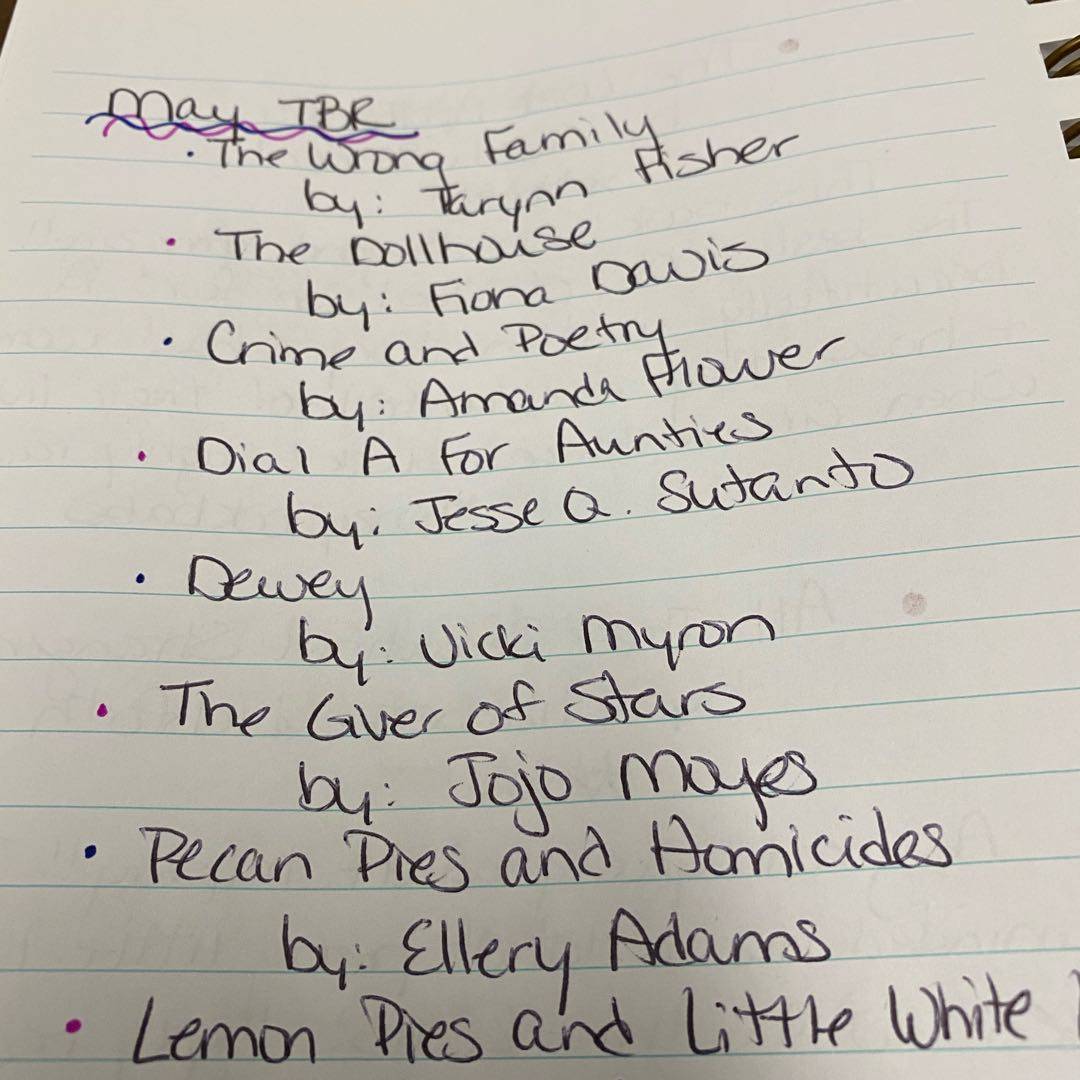 May TBR
· The Wrong Family
by: Tarynn Fisher
· The Dollhouse
by: Fiona Davis
· Crime and Poetry
by: Amanda Flower
· Dial A For Aunties
by: Jesse Q. Sutanto
· Dewey
by: Vicki Myron
· The Giver of Stars
by: Jojo Moyes
· Pecan Pies and Homicides
by: Ellery Adams
· Lemon Pies and Little White